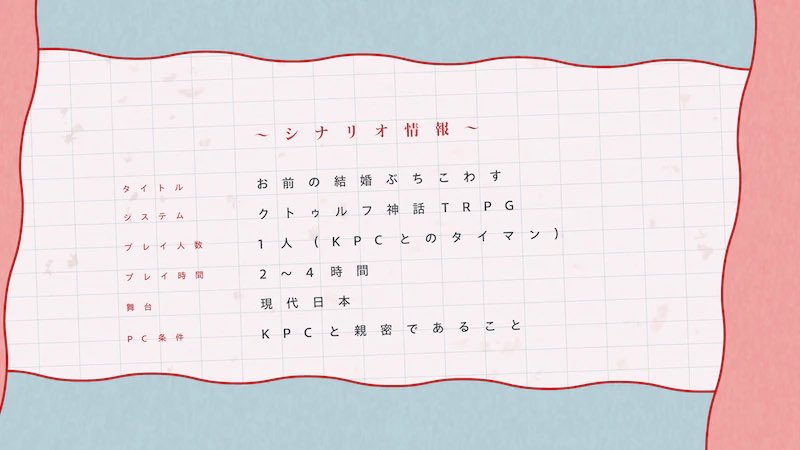 ～シナリオ情報～
タイトル お前の結婚ぶちこわす
システム クトゥルフ神話TRPG
プレイ人数 1人（KPCとのタイマン）
プレイ時間 2～4時間
舞台 現代日本
PC条件 KPCと親密であること